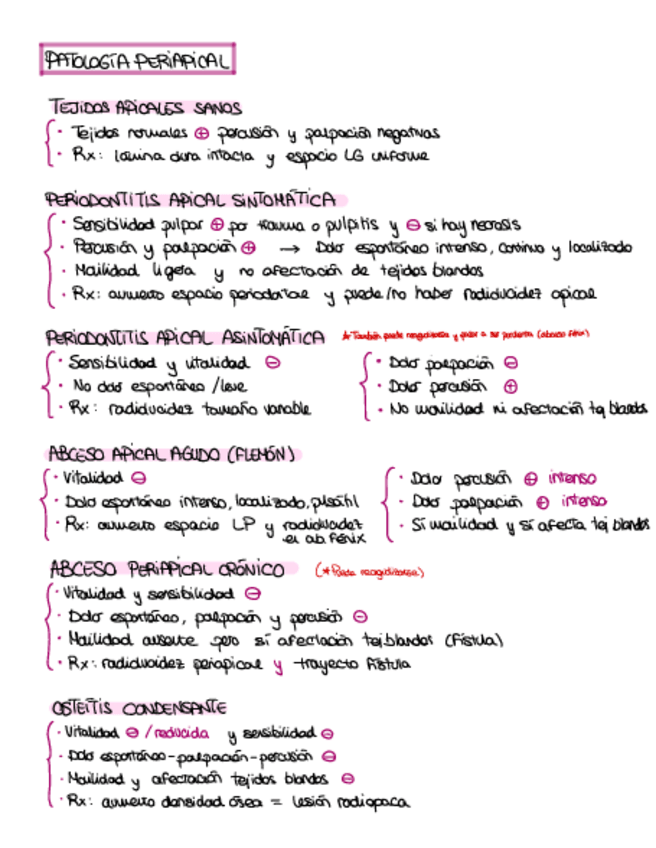 PATOLOGÍA PERIAPICAL
TEJIDOS APICALES SANOS
· Tejidos normales ⊕ percusión y palpación negativas
· Rx: lámina dura intacta y espacio LG uniforme
PERIODONTITIS APICAL SINTOMÁTICA
· Sensibilidad pulpar ⊕ por trauma o pulpitis y ⊖ si hay necrosis
· Percusión y palpación ⊕ → Dolor espontáneo intenso, continuo y localizado
· Mailidad ligera y no afectación de tejidos blandos
· Rx: aumento espacio periodontal y puede/no haber radiolucidez apical
PERIODONTITIS APICAL ASINTOMÁTICA * También puede reagudizarse y pasar a ser (absceso fénix)
· Sensibilidad y vitalidad ⊖
· No dolor espontáneo /leve
· Rx: radiolucidez tamaño variable
· Dolor palpación ⊖
· Dolor percusión ⊕
· No movilidad ni afectación tej blandos
ABCESO APICAL AGUDO (FLEMÓN)
· Vitalidad ⊖
· Dolor espontáneo intenso, localizado, pulsátil
· Rx: aumento espacio LP y radiolucidez
en ab. fénix
· Dolor percusión ⊕ intenso
· Dolor palpación ⊕ intenso
· Sí movilidad y sí afecta tej blandos
ABCESO PERIAPICAL CRÓNICO (*Puede reagudizarse)
· Vitalidad y sensibilidad ⊖
· Dolor espontáneo, palpación y percusión ⊖
· Movilidad ausente pero sí afectación tej.blandos (Fístula)
· Rx: radiolucidez periapical y trayecto fístula
OSTEÍTIS CONDENSANTE
· Vitalidad ⊖ /reducida y sensibilidad ⊖
· Dolor espontáneo-palpación-percusión ⊖
· Movilidad y afectación tejidos blandos ⊖
· Rx: aumento densidad ósea = lesión radiopaca